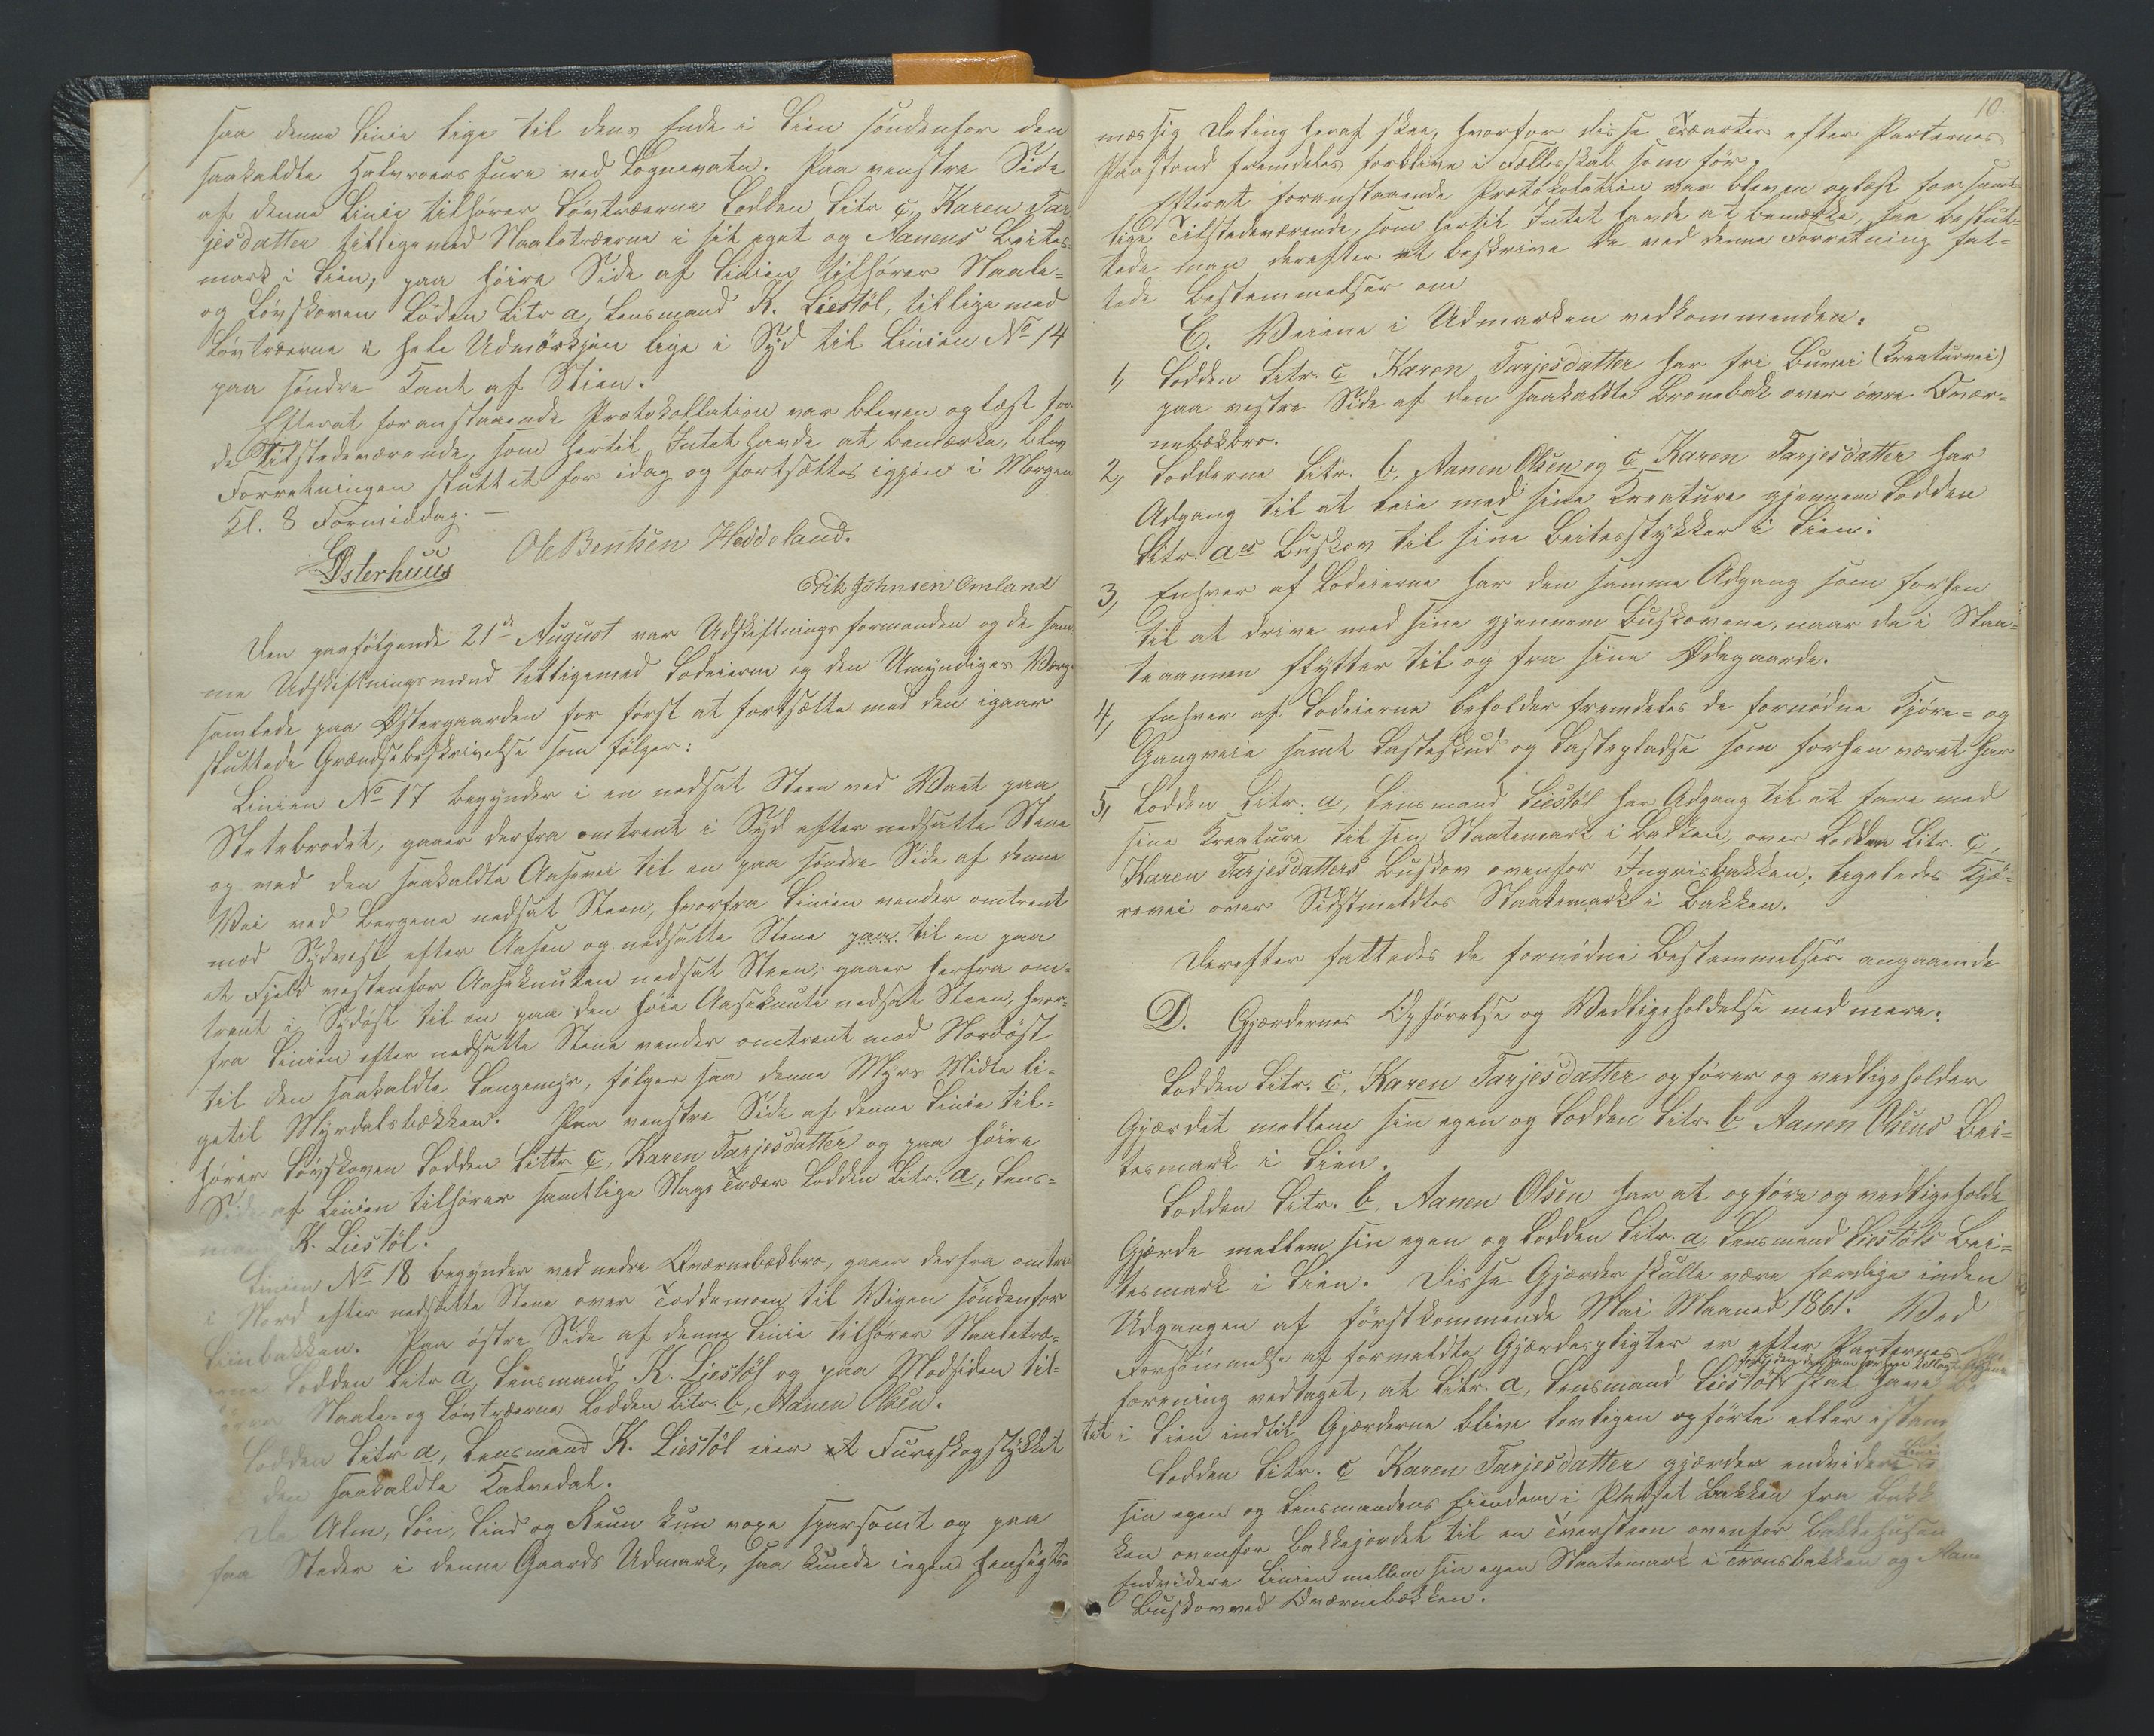 saa denne Linie lige til dens Ende i Lien søndenfor den
saakaldte Halvroersfura ved Lognevatn. Paa venstre Side
af denne Linie tilhører Løvtræerne Lodden Litr c, Karen Tar
jesdatter tilligemed Naaletræerne i sit eget og Aanens Beites
mark i Lien; paa høire Side af Linien tilhører Naale=
og Løvskoven Lodden Litr a, Lensmand K. Liestöl, tilligemed
Løvtræerne i hele Udmørkjen lige i Syd til Linien No 14
paa søndre Kant af Stien.
Efterat foranstaaende Protokollation var bleven oplæst for
de Tilstedeværende, som hertil Intet havde at bemærke, blev
Forretningen sluttet for idag og fortsættes igjen i Morgen
Kl. 8 Formiddag. —
Østerhuus Ole Bentsen Heddeland.
Erik Johnsen Omland
Den paafølgende 21de August var Udskiftningsformanden og de sam
me Udskiftningsmænd tilligemed Lodeierne og den Umyndiges Værge
samlede paa Østergaarden for først at fortsætte med den igaar
sluttede Grændsebeskrivelse som følger:
Linien No 17 begynder i en nedsat Steen ved Vant paa
Stulebrodet, gaaer derfra omtrent i Syd efter nedsatte Stene
og ved den saakaldte Aasevei til en paa søndre Side af denne
Vei ved Bergene nedsat Steen, hvorfra Linien vender omtrent
mod Sydvest efter Aasen og nedsatte Stene paa til en paa
et Fjeld vestenfor Aaseknuten nedsat Steen; gaaer herfra om=
trent i Sydøst til en paa den høie Aaseknute nedsat Steen, hvor=
fra Linien efter nedsatte Stene vender omtrent mod Nordøst
til den saakaldte Langemyr, følger saa denne Myrs Midte li=
getil Myrdalsbækken. Paa venstre Side af denne Linie til=
hører Løvskoven Lodden Littr c, Karen Tarjesdatter og paa høire
Side af Linien tilhører samtlige Slags Træer Lodden Litr. a, Lens=
mand K. Liestöl.
Linien No 18 begynder ved nedre Qværnebækbro, gaaer derfra omtrent
i Nord efter nedsatte Stene over Toddemoen til Vigen søndenfor
Liinbakken. Paa østre Side af denne Linie tilhører Naaletræ=
erne Lodden Litr a, Lensmand K. Liestöl og paa Modsiden til=
hører Naale- og Løvtræerne Lodden Litr. b, Aanen Olsen.
Lodden Litr a, Lensmand K. Liestöl eier et Fureskogstykket
i den saakaldte Katvedal.
Da Alm, Løn, Lind og Reun kun voxe sparsomt og paa
faa Steder i denne Gaards Udmark, saa kunde ingen hensigts=
10.
mæssig Deling heraf skee, hvorfor disse Træarter efter Parternes
Paastand fremdeles forblive i Fællesskab som før.
Efterat foranstaaende Protokolation var bleven oplæst for samt=
lige Tilstedeværende, som hertil Intet havde at bemærke, saa beslut=
tede man derefter at beskrive de ved denne Forretning fat=
tede Bestemmelser om
C. Veiene i Udmarken vedkommende.
1, Lodden Litr. c Karen Tarjesdatter har fri Buvei (Kreaturvei)
paa vestre Side af den saakaldte Bronebak over øvre Qvær=
nebækbro.
2, Lodderne Litr. b, Aanen Olsen og c Karen Tarjesdatter har
Adgang til at leie med sine Kreature gjennem Lodden
Litr. aes Buskov til sine Beitesstykker i Lien.
3, Enhver af Lodeierne har den samme Adgang som forhen
til at drive med sine gjennem Buskovene, naar de i Slaa=
teaannen flytter til og fra sine Ødegaarde.
4, Enhver af Lodeierne beholder fremdeles de fornødne Kjøre= og
Gangveie samt Lasteskud og Lastepladse som forhen været har
5, Lodden Litr. a, Lensmand Liestöl har Adgang til at fare med
sine Kreature til sin Slaatemark i Bakken, over Lodden Litr. c,
Karen Tarjesdatters Buskov ovenfor Ingrisbakken, ligeledes Kjø=
revei over Sidstmeldtes Slaatemark i Bakken.
Derefter fattedes de fornødne Bestemmelser angaaende
D. Gjærdernes Opførelse og Vedligeholdelse med mere.
Lodden Litr. c, Karen Tarjesdatter opfører og vedligeholder
Gjærdet mellem sin egen og Lodden Litr. b Aanen Olsens Bei=
tesmark i Lien.
Lodden Litr. b, Aanen Olsen har at opføre og vedligeholde
Gjærde mellem sin egen og Lodden Litr. a, Lensmand Liestöls Bei=
tesmark i Lien. Disse Gjærder skulle være færdige inden
Udgangen af førstkommende Mai Maaned 1861. Ved
Forsømmelse af formeldte Gjærdespligter er efter Parternes
forening vedtaget, at Litr. a, Lensmand Liestöl skal have
tet i Lien indtil Gjærderne blive lovligen opførte eller istand
Lodden Litr. c Karen Tarjesdatter gjærder endvidere
sin egen og Lensmandens Eiendom i Pladset Bakken fra Bakk
ken ovenfor Bakkejordet til en Tværsteen ovenfor Bakkehusene
Endvidere Linien mellem sin egen Slaatemark i Tronsbakken og Aane
Buskov ved Qværnebækken.